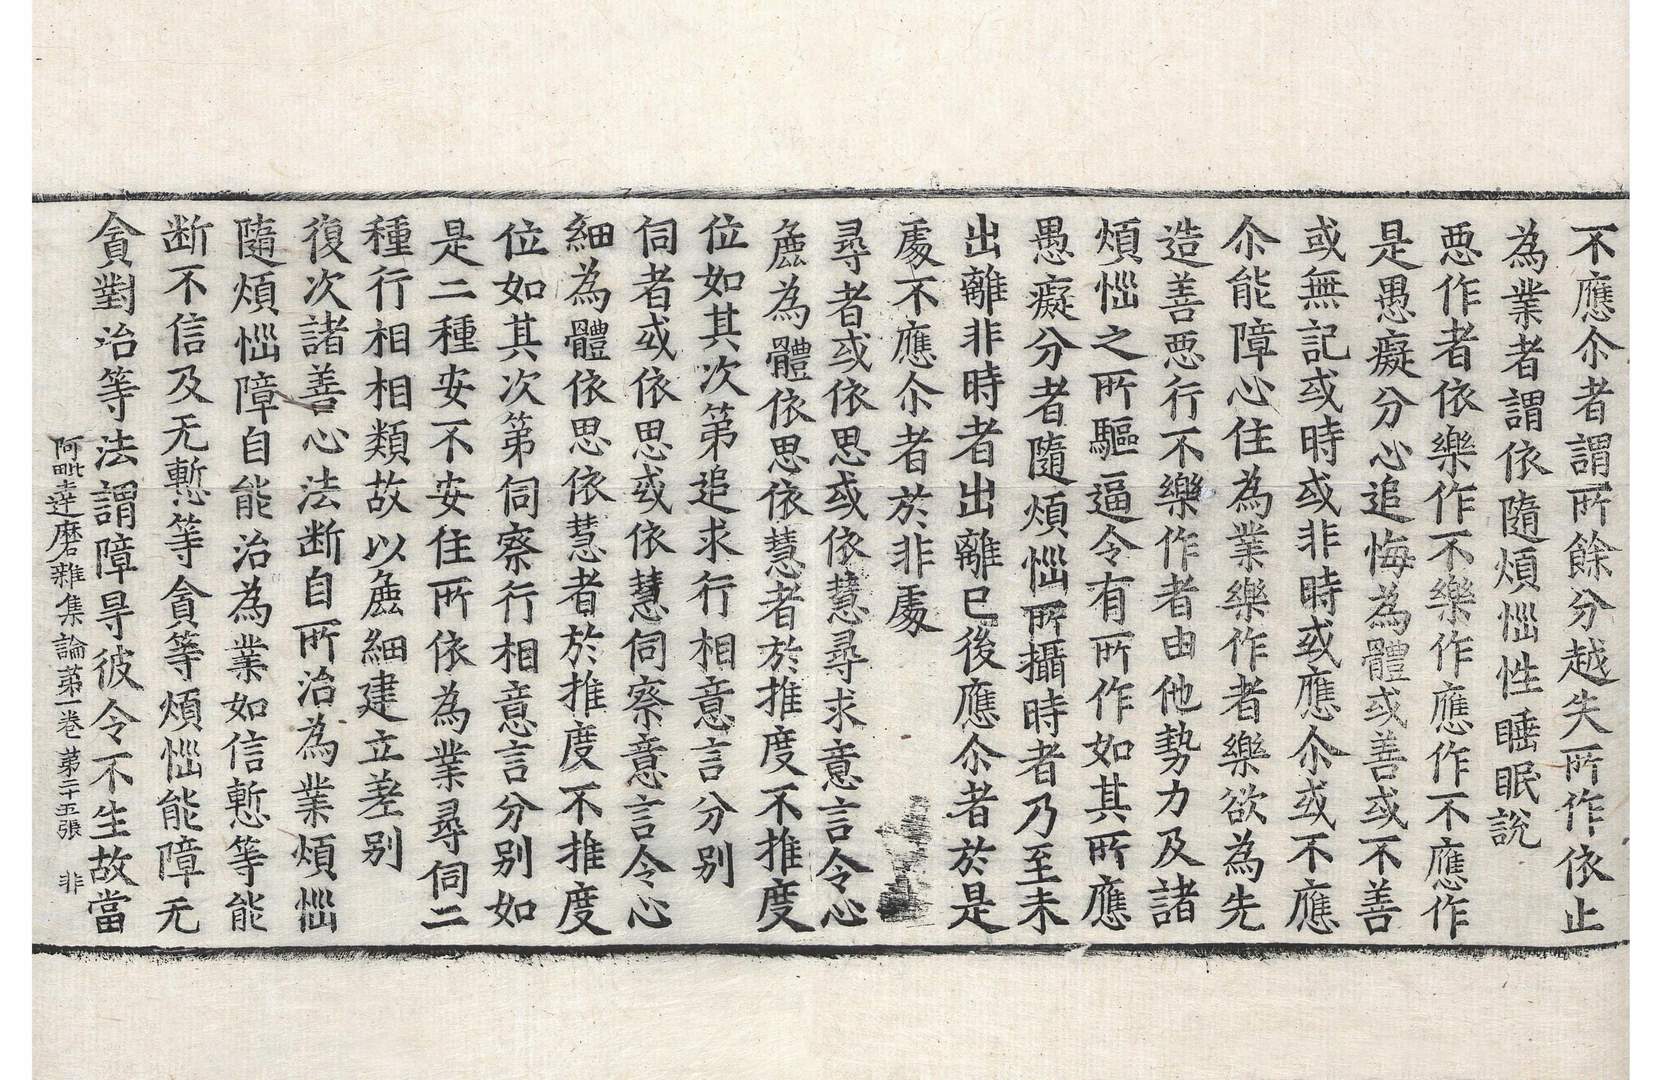 不應尒者謂所餘分越失所作依止
為業者謂依隨煩惱性睡眠說
惡作者依樂作不樂作應作不應作
是愚癡分心追悔為體或善或不善
或無記或時或非時或應尒或不應
尒能障心住為業樂作者樂欲為先
造善惡行不樂作者由他勢力及諸
煩惱之所驅逼令有所作如其所應
愚癡分者隨煩惱所攝時者乃至未
出離非時者出離已後應尒者於是
處不應尒者於非處
尋者或依思或依慧尋求意言令心
麁為體依思依慧者於推度不推度
位如其次第追求行相意言分別
伺者或依思或依慧伺察意言令心
細為體依思依慧者於推度不推度
位如其次第伺察行相意言分別如
是二種安不安住所依為業尋伺二
種行相相類故以麁細建立差別
復次諸善心法断自所治為業煩惱
隨煩惱障自能治為業如信慙等能
断不信及无慙等貪等煩惱能障无
貪對治等法謂障㝵彼令不生故當
阿毗達磨雜集論第一卷 第二十五張 非